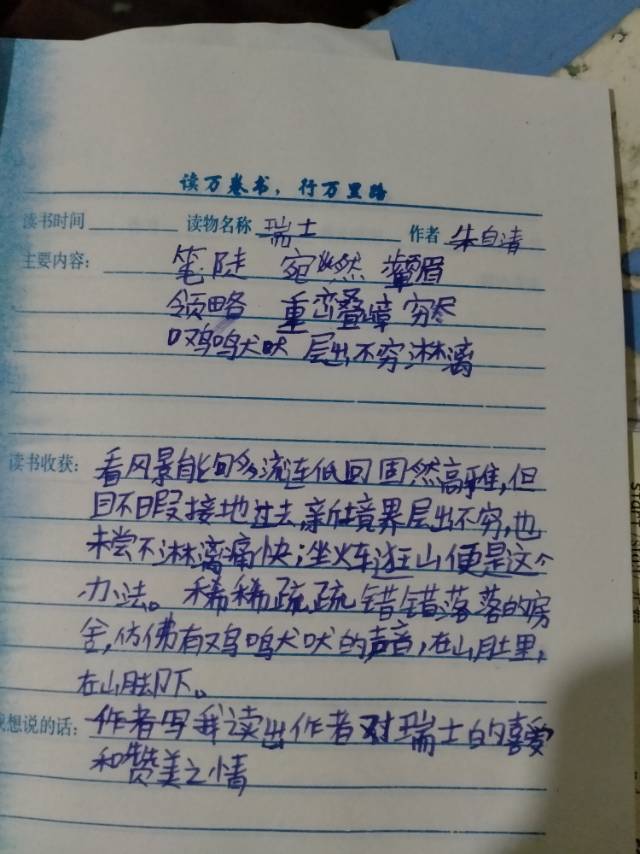 读万卷书，行万里路
读书时间 读物名称 瑞士 作者 朱自清
主要内容： 笔陡 宛然 颦眉
领略 重峦叠嶂 穷尽
鸡鸣犬吠 层出不穷 淋漓
读书收获： 看风景能够流连低回固然高雅，但
目不暇接地过去，新境界层出不穷，也
未尝不淋漓痛快；坐火车逛山便是这个
办法。 稀稀疏疏错错落落的房
舍，仿佛有鸡鸣犬吠的声音，在山肚里，
在山脚下。
我想说的话： 作者写我读出作者对瑞士的喜爱
和赞美之情